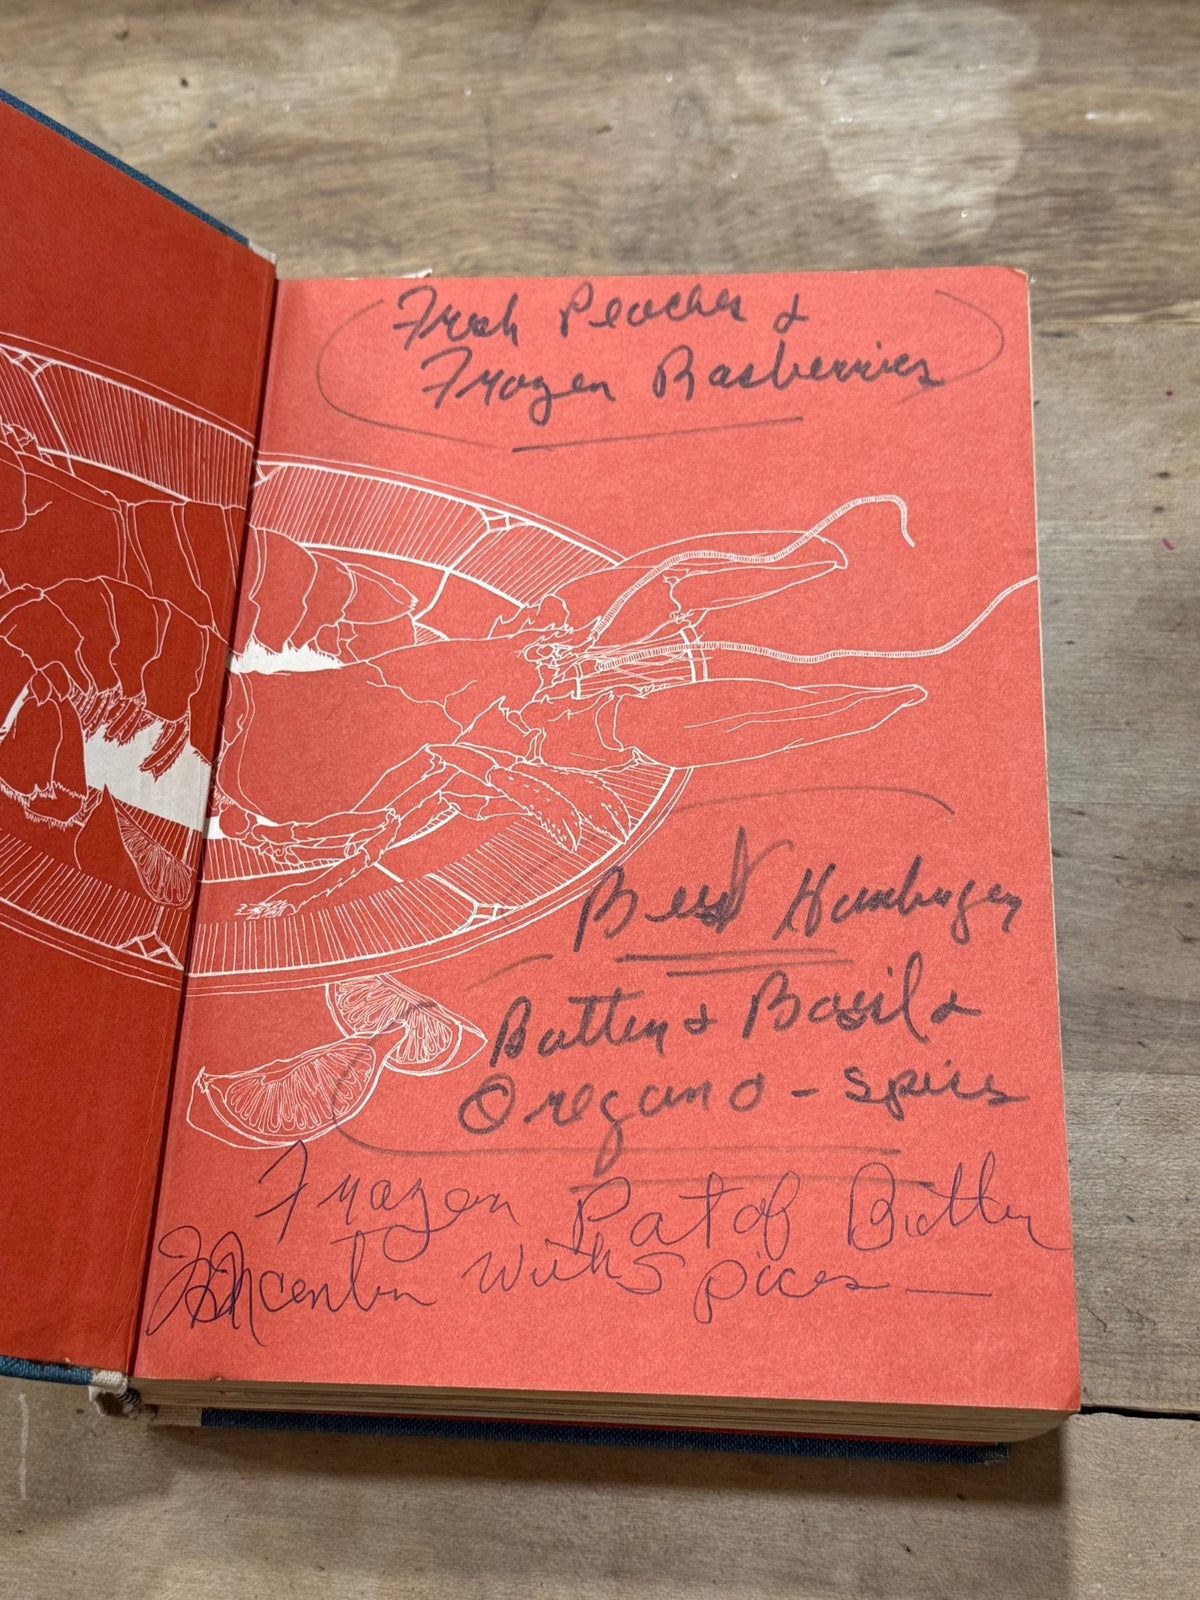 Fresh Peaches &
Frozen Rasberries
Best Hamburger
Butter & Basil &
Oregano - spices
Frozen Pat of Butter
In center with spices —